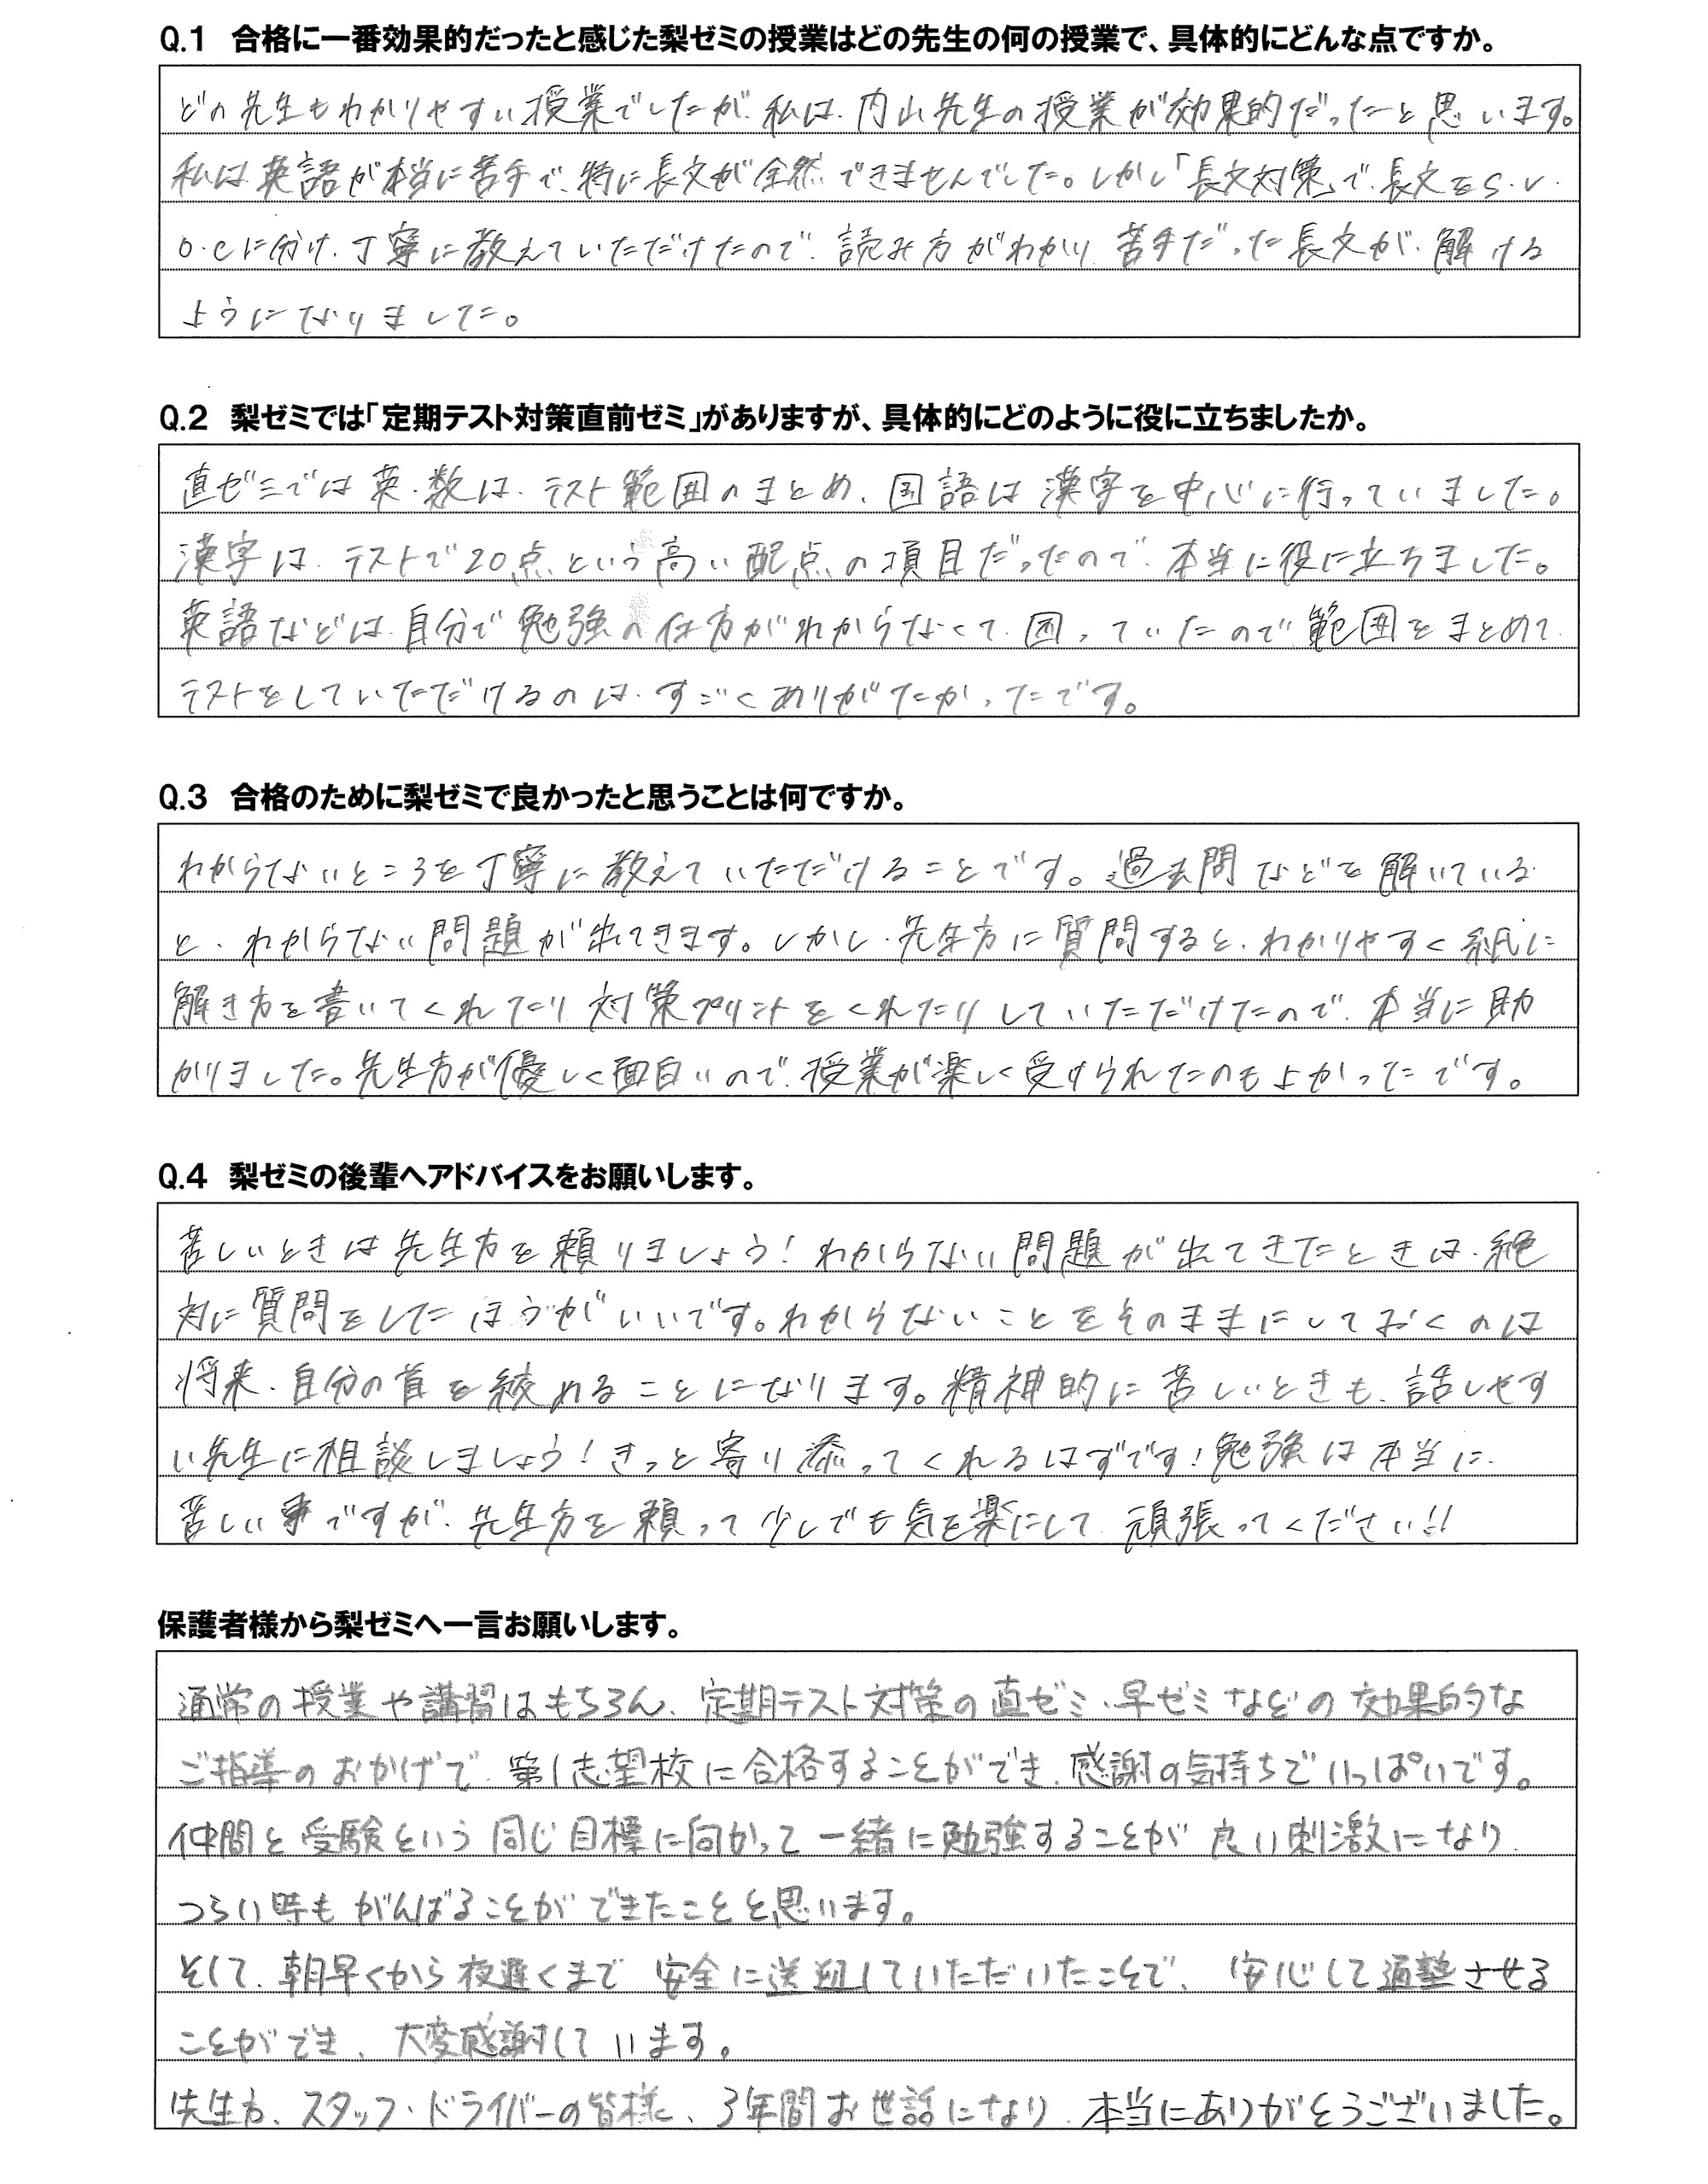 Q.1 合格に一番効果的だったと感じた梨ゼミの授業はどの先生の何の授業で、具体的にどんな点ですか。
どの先生もわかりやすい授業でしたが、私は、内山先生の授業が効果的だったと思います。
私は英語が本当に苦手で、特に長文が全然できませんでした。しかし「長文対策」で、長文をS.V.
O.Cに分け、丁寧に教えていただけたので、読み方がわかり、苦手だった長文が、解ける
ようになりました。
Q.2 梨ゼミでは「定期テスト対策直前ゼミ」がありますが、具体的にどのように役に立ちましたか。
直ゼミでは英・数は、テスト範囲のまとめ、国語は漢字を中心に行っていました。
漢字は、テストで20点という高い配点の項目だったので、本当に役に立ちました。
英語などは、自分で勉強の仕方がわからなくて、困っていたので範囲をまとめて
テストをしていただけるのは、すごくありがたかったです。
Q.3 合格のために梨ゼミで良かったと思うことは何ですか。
わからないところを丁寧に教えていただけることです。過去問などを解いている
と、わからない問題が出てきます。しかし、先生方に質問すると、わかりやすく紙に
解き方を書いてくれたり対策プリントをくれたりしていただけたので、本当に助
かりました。先生方が優しく面白いので、授業が楽しく受けられたのもよかったです。
Q.4 梨ゼミの後輩へアドバイスをお願いします。
苦しいときは先生方を頼りましょう！わからない問題が出てきたときは、絶
対に質問をしたほうがいいです。わからないことをそのままにしておくのは
将来、自分の首を絞めることになります。精神的に苦しいときも、話しやす
い先生に相談しましょう！きっと寄り添ってくれるはずです！勉強は本当に
苦しい事ですが、先生方を頼って少しでも気を楽にして、頑張ってください!!
保護者様から梨ゼミへ一言お願いします。
通常の授業や講習はもちろん、定期テスト対策の直ゼミ、早ゼミなどの効果的な
ご指導のおかげで、第1志望校に合格することができ、感謝の気持ちでいっぱいです。
仲間と受験という同じ目標に向かって一緒に勉強することが良い刺激になり、
つらい時もがんばることができたことと思います。
そして、朝早くから夜遅くまで安全に送迎していただいたことで、安心して通塾させる
ことができ、大変感謝しています。
先生方、スタッフ・ドライバーの皆様、3年間お世話になり、本当にありがとうございました。